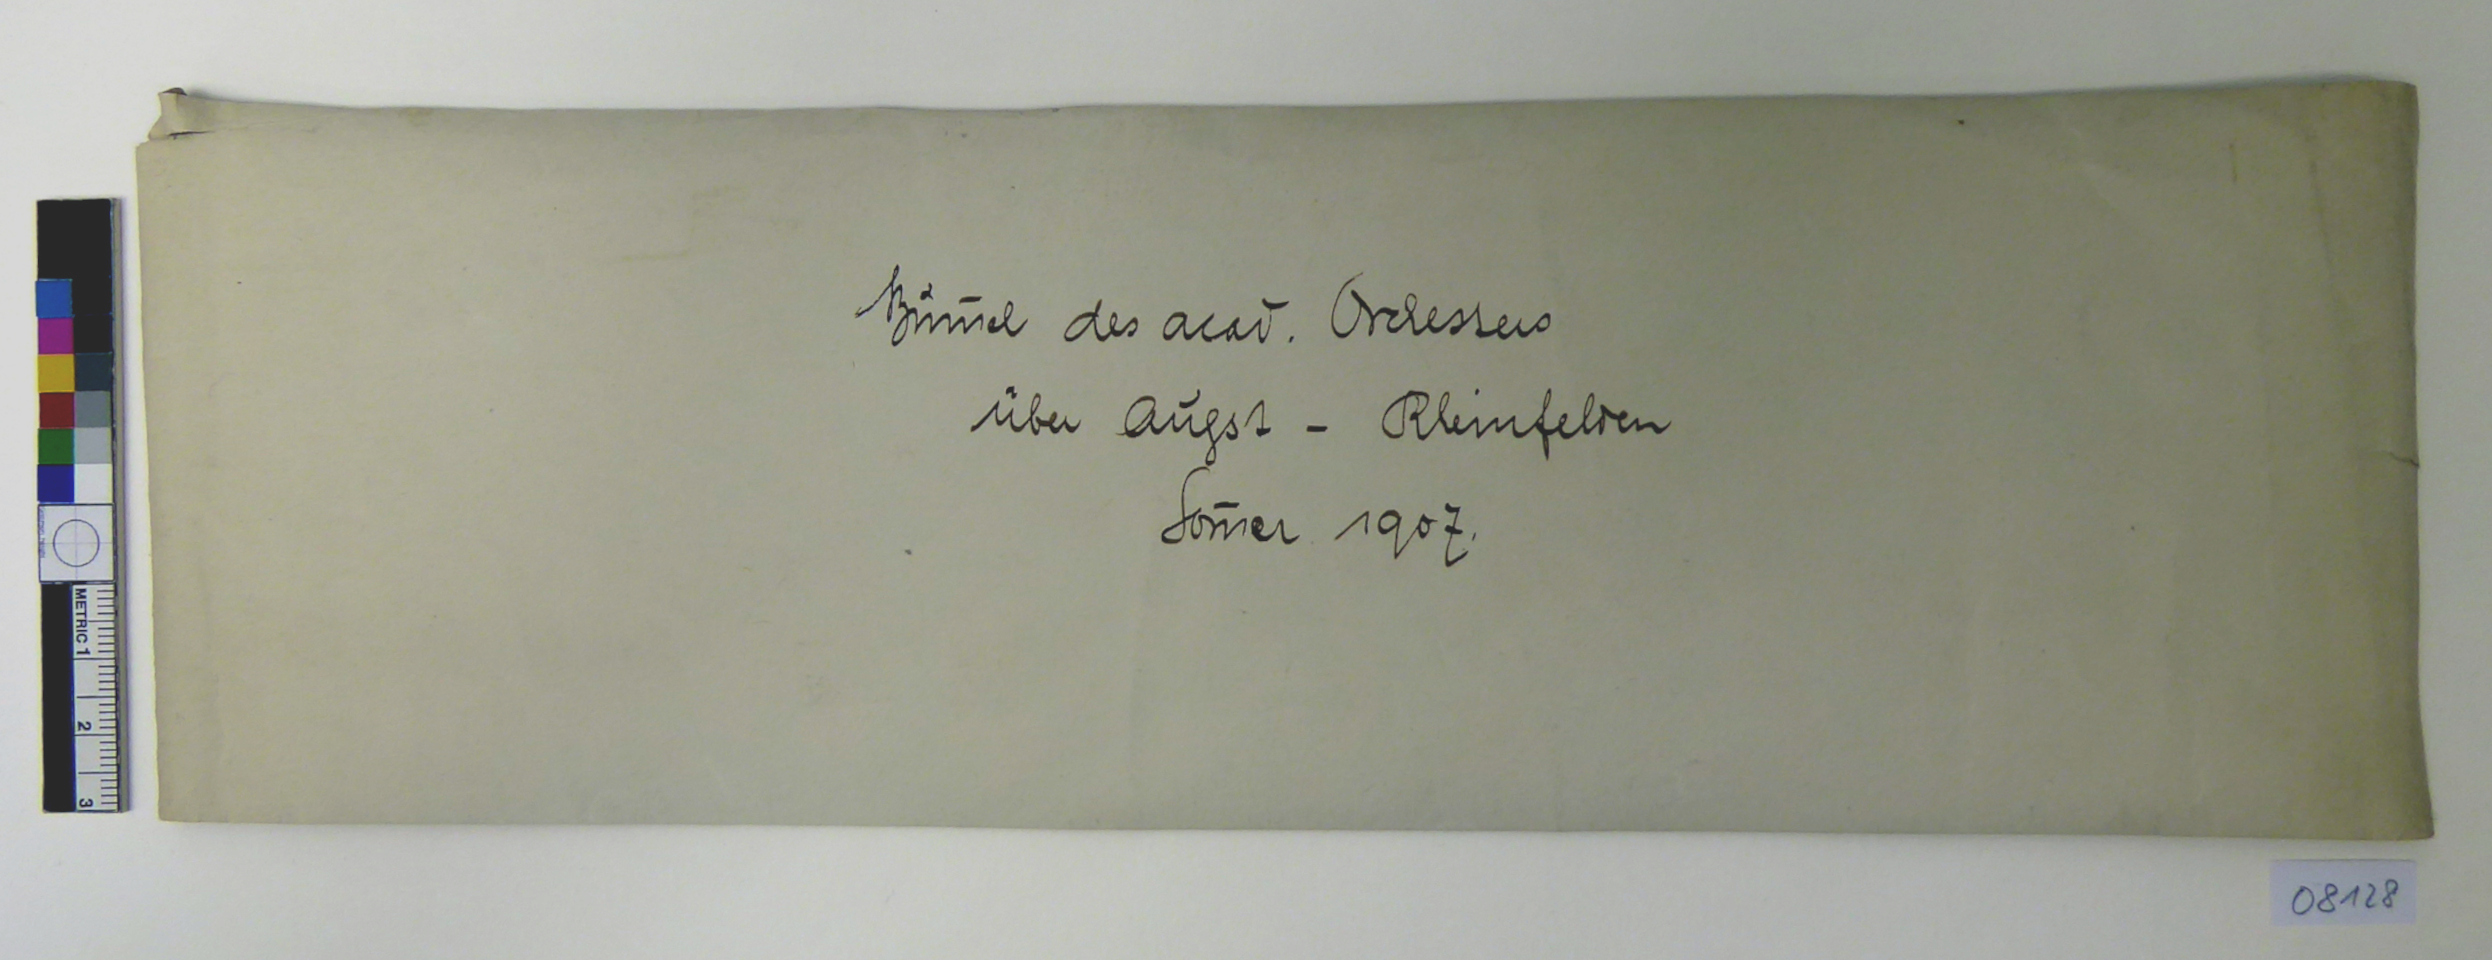 Bum̄el des acad. Orchesters
über Augst - Rheinfelden
Som̄er 1907.
METRIC 1
2
3
08128